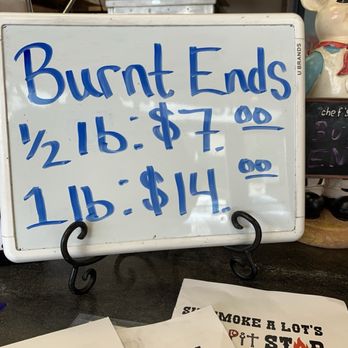 Burnt Ends
1/2 lb: $7.00
1 lb: $14.00
U BRANDS
chef's
SMOKE A LOT'S
PIT STOP